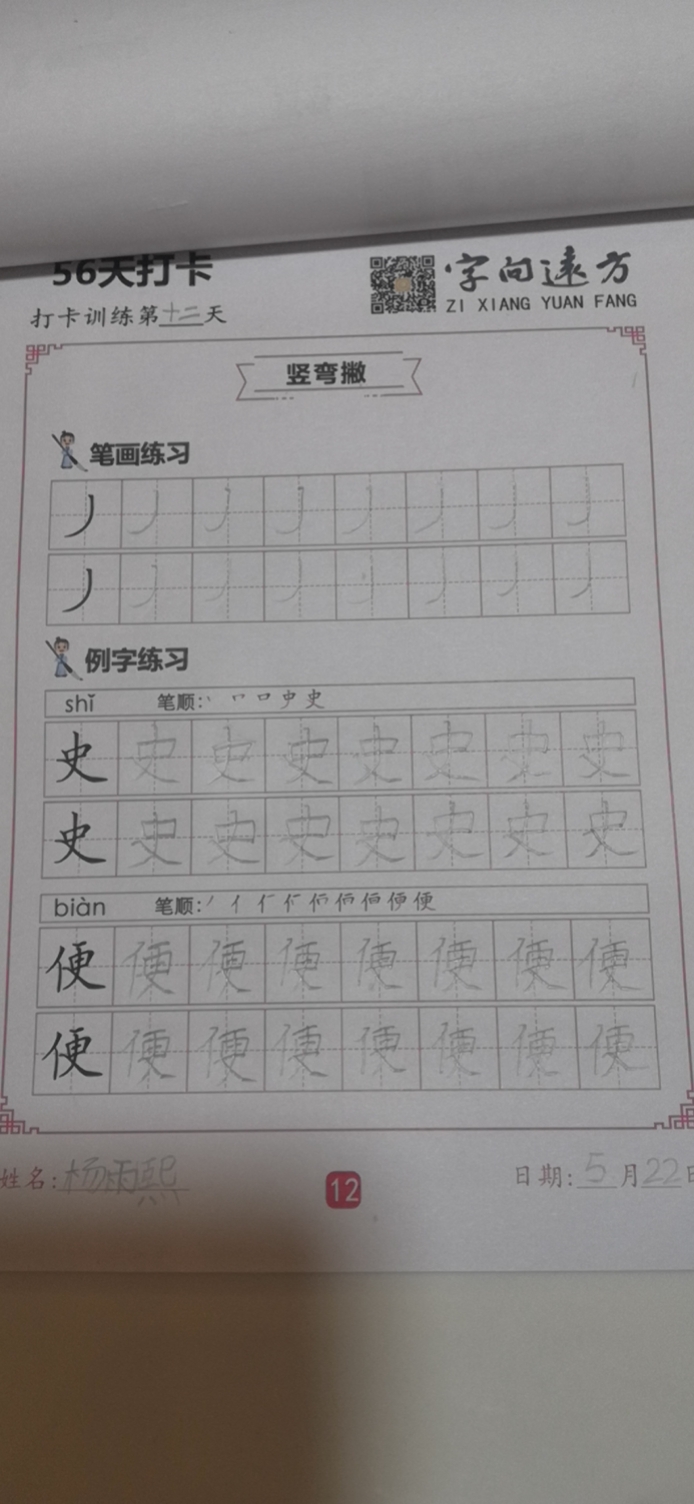 56天打卡
字向遠方
ZI XIANG YUAN FANG
打卡训练第十二天
竖弯撇
笔画练习
丿 丿 丿 丿 丿 丿 丿 丿
丿 丿 丿 丿 丿 丿 丿 丿
例字练习
shǐ 笔顺: 丨 冂 口 史 史
史 史 史 史 史 史 史 史
史 史 史 史 史 史 史 史
biàn 笔顺: 丿 亻 便
便 便 便 便 便 便 便 便
便 便 便 便 便 便 便 便
姓名:杨雨熙
12
日期:5月22日